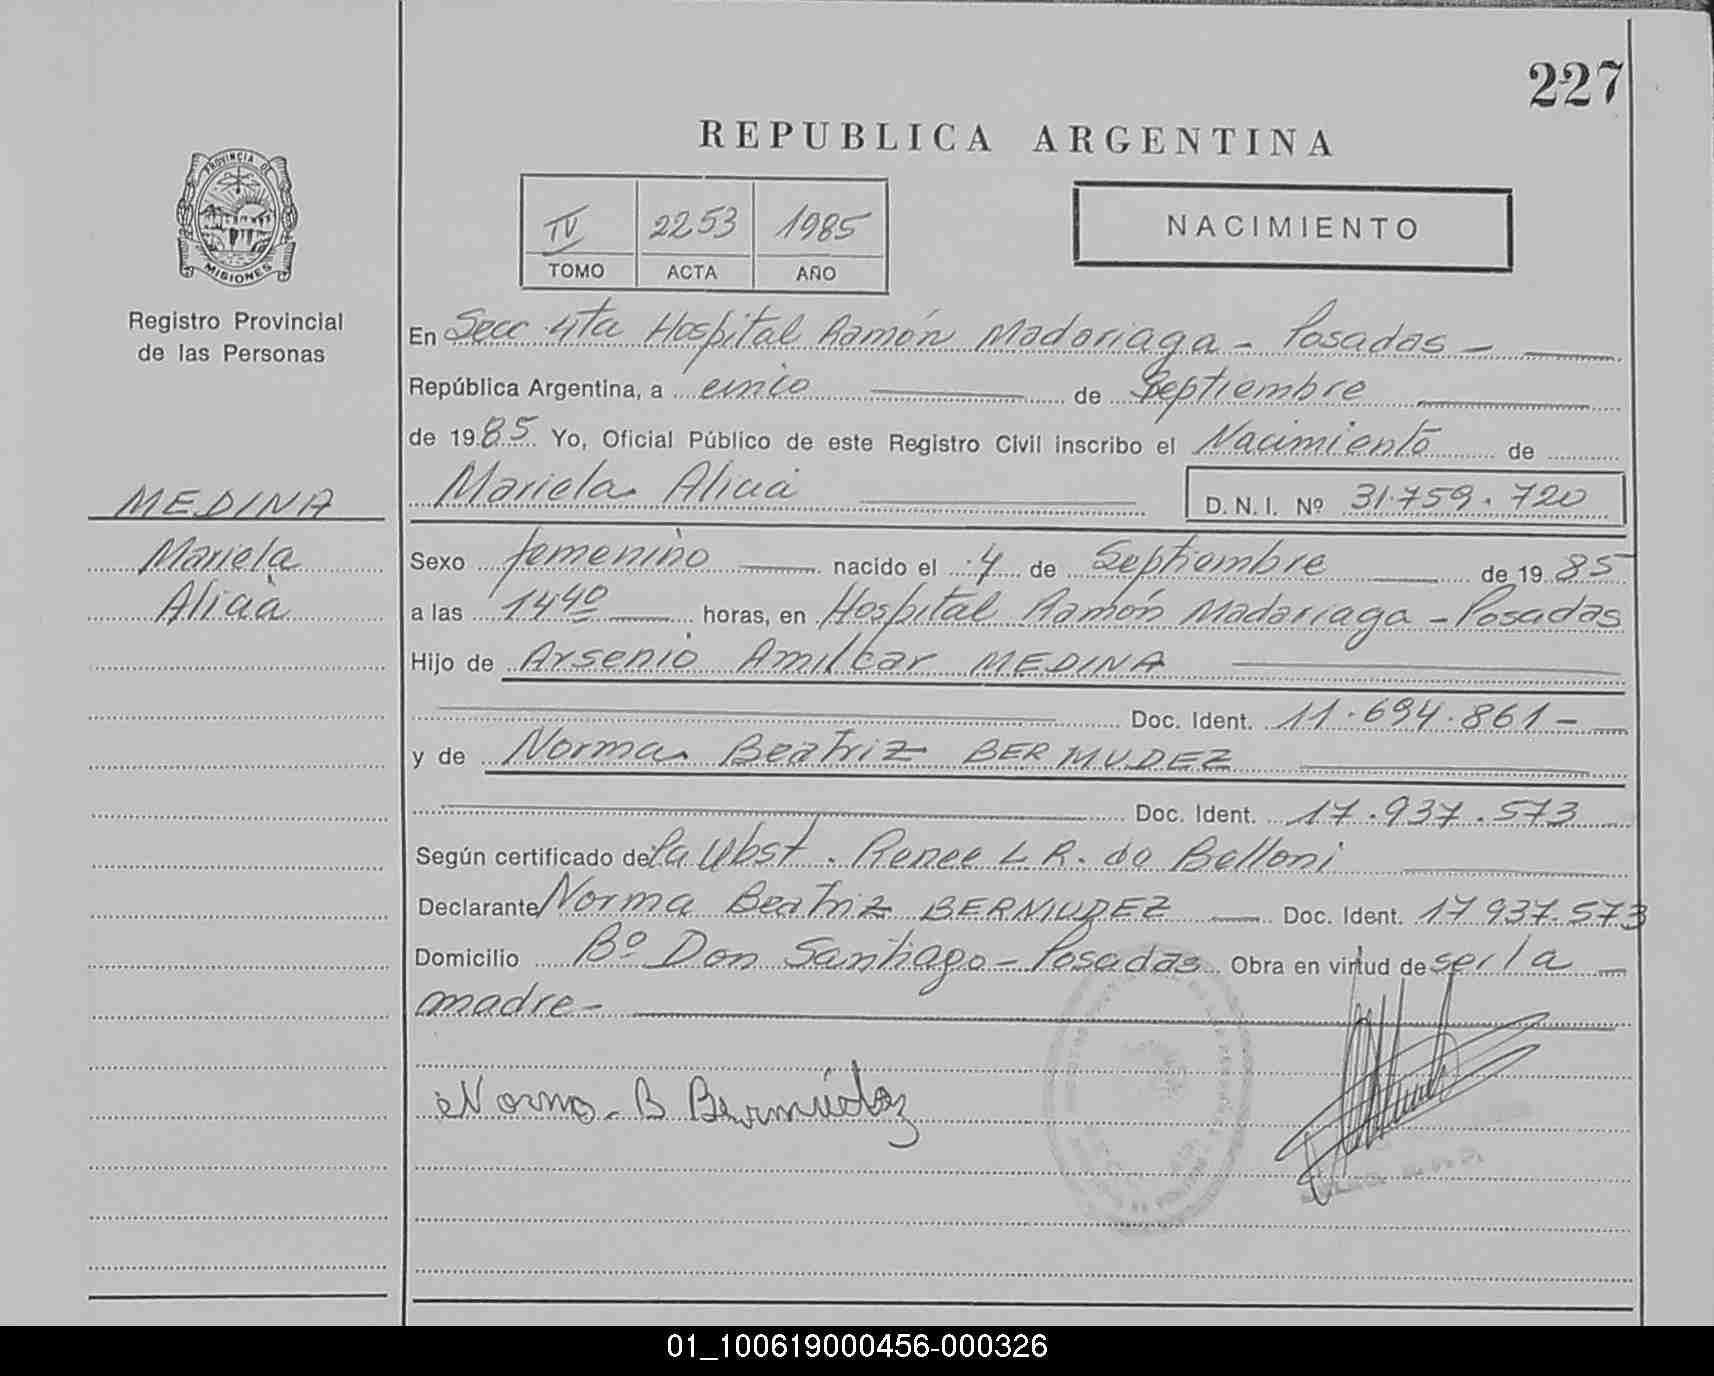 227
REPUBLICA ARGENTINA
PROVINCIA DE
MISIONES
IV 2253 1985
TOMO ACTA AÑO
NACIMIENTO
Registro Provincial
de las Personas
En Secc 4ta Hospital Ramón Madariaga - Posadas -
República Argentina, a cinco de Septiembre
de 1985 Yo, Oficial Público de este Registro Civil inscribo el Nacimiento de
Mariela Alicia D. N. I. Nº 31.759.720
MEDINA
Mariela
Alicia
Sexo femenino nacido el 4 de Septiembre de 1985
a las 14 40 horas, en Hospital Ramón Madariaga - Posadas
Hijo de Arsenio Amilcar MEDINA
Doc. Ident. 11.694.861-
y de Norma Beatriz BERMUDEZ
Doc. Ident. 17.937.573
Según certificado de la Obst. Renee L R. de Belloni
Declarante Norma Beatriz BERMUDEZ Doc. Ident. 17 937.573
Domicilio Bº Don Santiago - Posadas Obra en virtud de ser la
madre-
Norma B Bermúdez
01_100619000456-000326